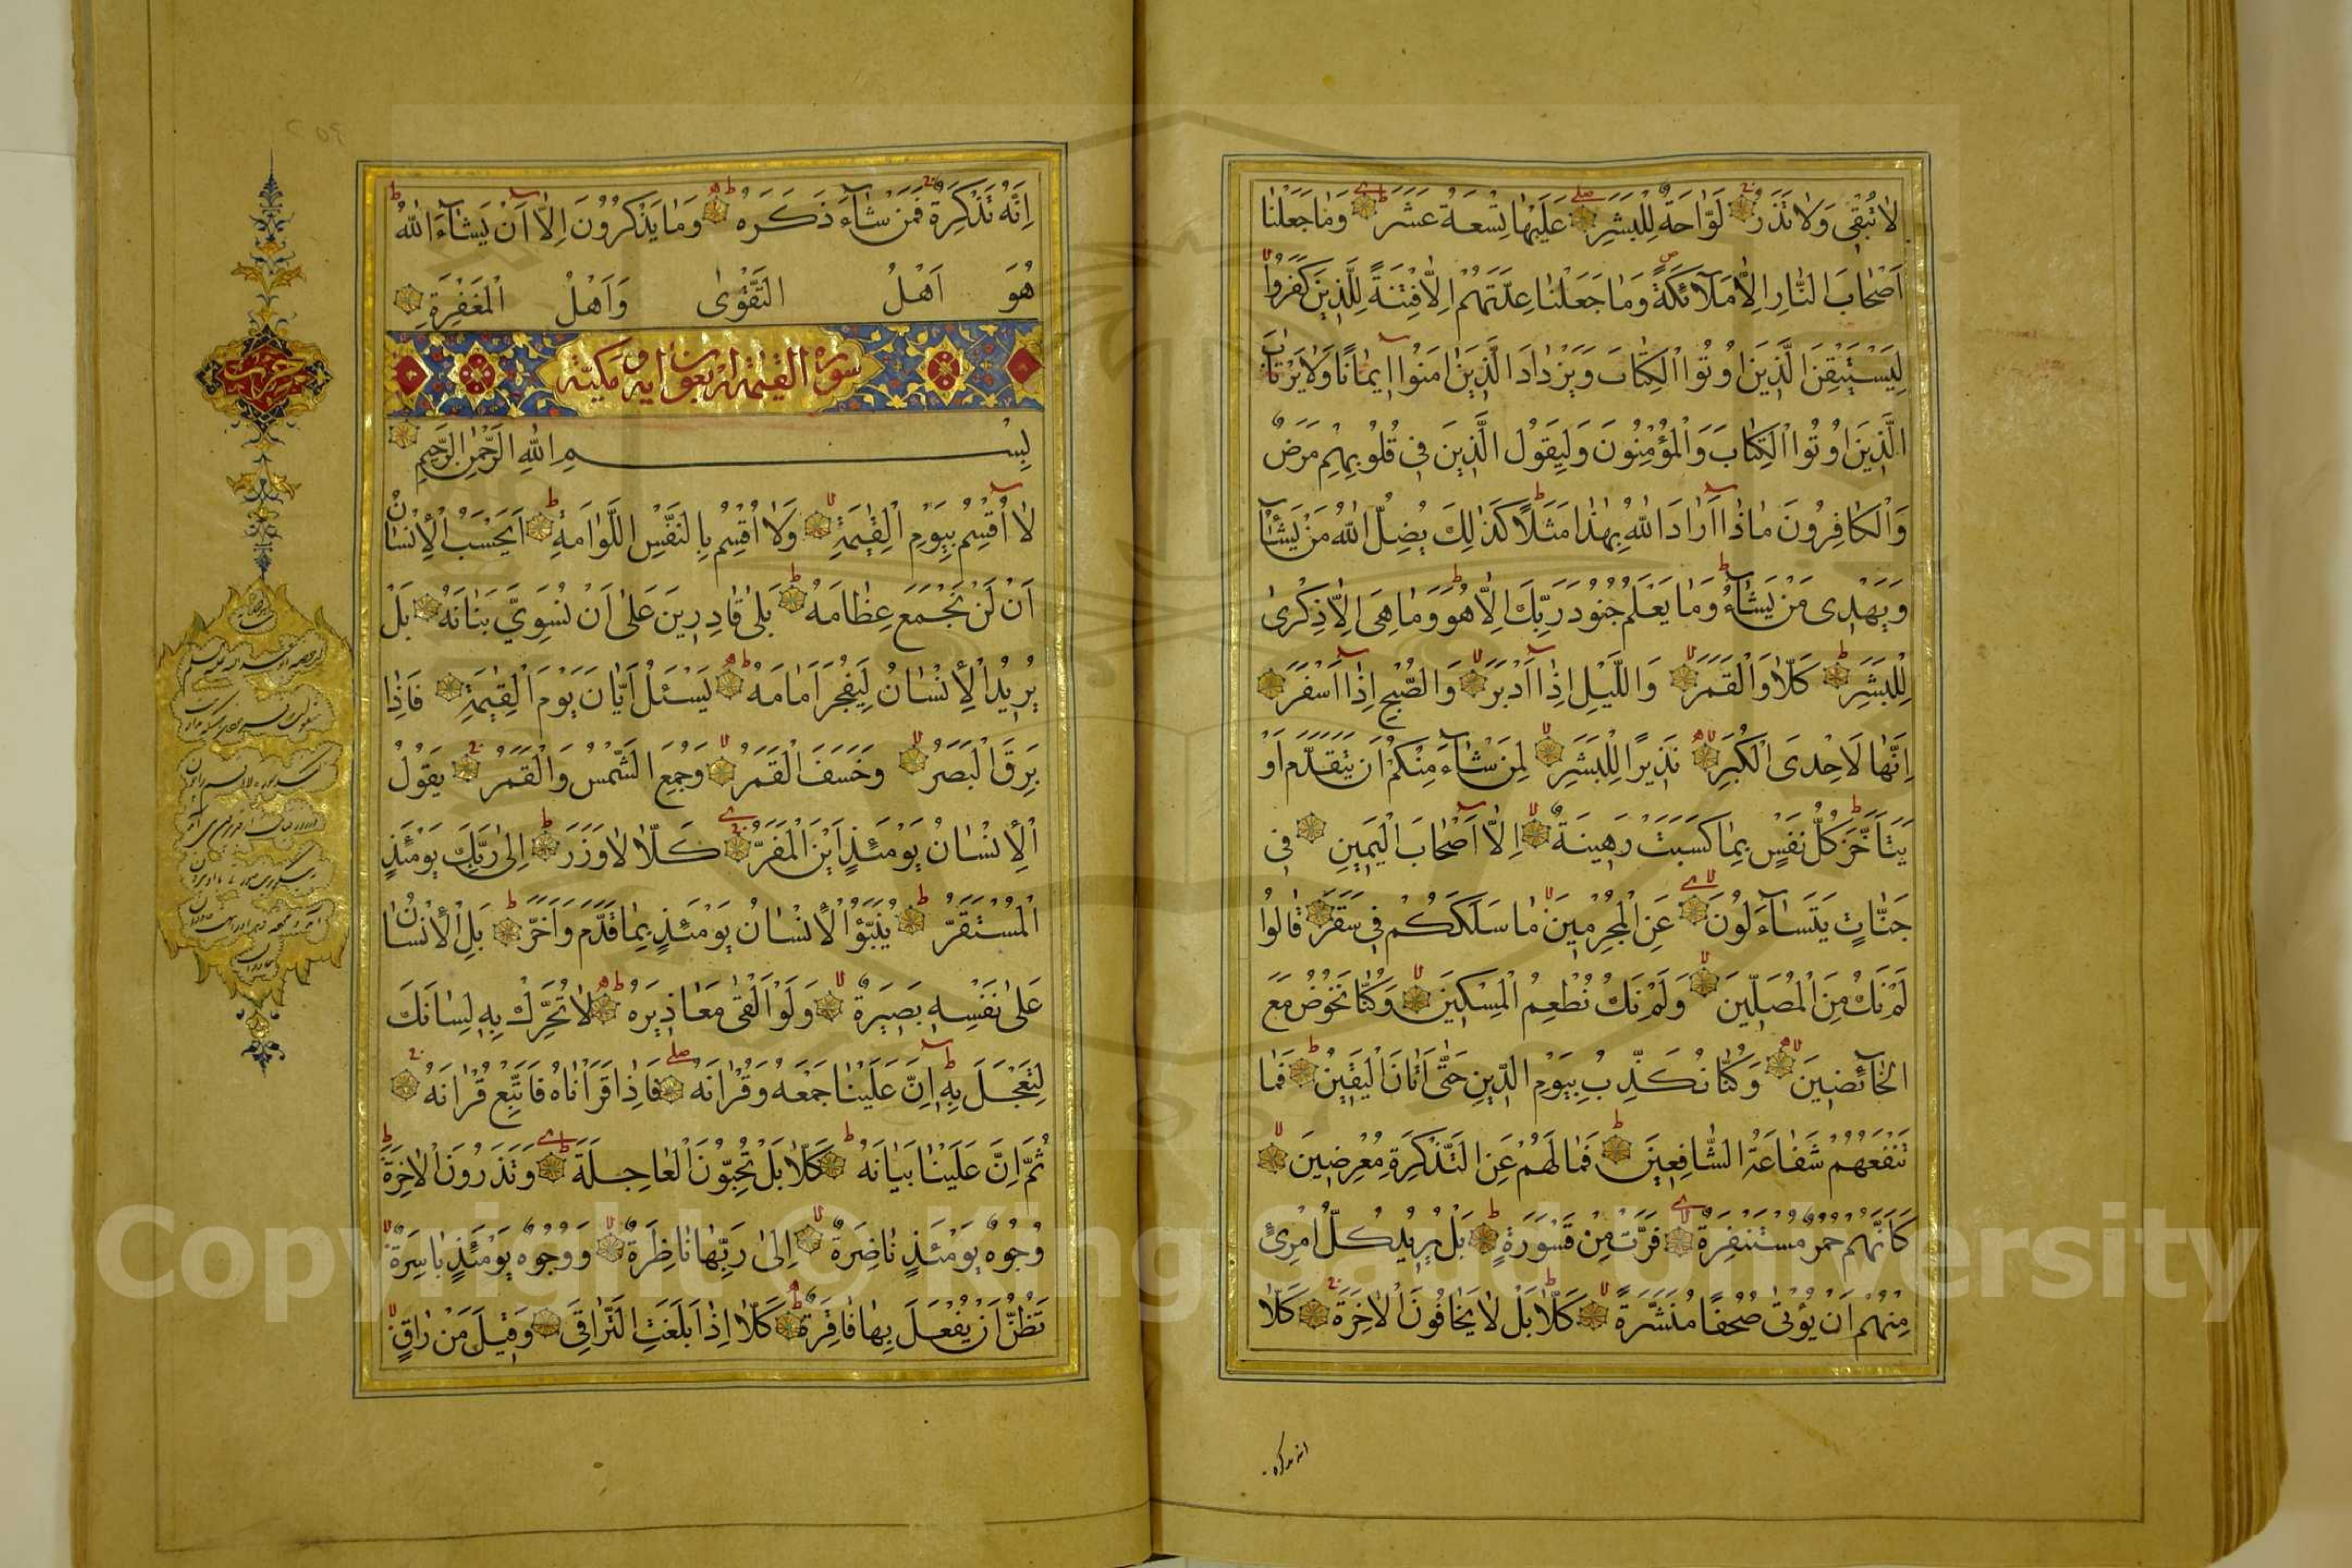 لَا تُبْقِى وَلَا تَذَرُ لَوَّاحَةٌ لِلْبَشَرِ عَلَيْهَا تِسْعَةَ عَشَرَ وَمَا جَعَلْنَا
اَصْحَابَ النَّارِ اِلَّا مَلَآئِكَةً وَمَا جَعَلْنَا عِدَّتَهُمْ اِلَّا فِتْنَةً لِلَّذِينَ كَفَرُوا
لِيَسْتَيْقِنَ الَّذِينَ اُوتُوا الْكِتَابَ وَيَزْدَادَ الَّذِينَ اٰمَنُوا اِيمَانًا وَلَا يَرْتَابَ
الَّذِينَ اُوتُوا الْكِتَابَ وَالْمُؤْمِنُونَ وَلِيَقُولَ الَّذِينَ فِى قُلُوبِهِمْ مَرَضٌ
وَالْكَافِرُونَ مَاذَا اَرَادَ اللّٰهُ بِهٰذَا مَثَلًا كَذٰلِكَ يُضِلُّ اللّٰهُ مَنْ يَشَآءُ
وَيَهْدِى مَنْ يَشَآءُ وَمَا يَعْلَمُ جُنُودَ رَبِّكَ اِلَّا هُوَ وَمَا هِىَ اِلَّا ذِكْرٰى
لِلْبَشَرِ كَلَّا وَالْقَمَرِ وَاللَّيْلِ اِذَا اَدْبَرَ وَالصُّبْحِ اِذَا اَسْفَرَ
اِنَّهَا لَاِحْدَى الْكُبَرِ نَذِيرًا لِلْبَشَرِ لِمَنْ شَآءَ مِنْكُمْ اَنْ يَتَقَدَّمَ اَوْ
يَتَاَخَّرَ كُلُّ نَفْسٍ بِمَا كَسَبَتْ رَهِينَةٌ اِلَّا اَصْحَابَ الْيَمِينِ فِى
جَنَّاتٍ يَتَسَآءَلُونَ عَنِ الْمُجْرِمِينَ مَا سَلَكَكُمْ فِى سَقَرَ قَالُوا
لَمْ نَكُ مِنَ الْمُصَلِّينَ وَلَمْ نَكُ نُطْعِمُ الْمِسْكِينَ وَكُنَّا نَخُوضُ مَعَ
الْخَآئِضِينَ وَكُنَّا نُكَذِّبُ بِيَوْمِ الدِّينِ حَتَّى اَتَانَا الْيَقِينُ فَمَا
تَنْفَعُهُمْ شَفَاعَةُ الشَّافِعِينَ فَمَا لَهُمْ عَنِ التَّذْكِرَةِ مُعْرِضِينَ
كَاَنَّهُمْ حُمُرٌ مُسْتَنْفِرَةٌ فَرَّتْ مِنْ قَسْوَرَةٍ بَلْ يُرِيدُ كُلُّ امْرِئٍ
مِنْهُمْ اَنْ يُؤْتٰى صُحُفًا مُنَشَّرَةً كَلَّا بَلْ لَا يَخَافُونَ الْاٰخِرَةَ كَلَّا
انه تذكره
اِنَّهُ تَذْكِرَةٌ فَمَنْ شَآءَ ذَكَرَهُ وَمَا يَذْكُرُونَ اِلَّا اَنْ يَشَآءَ اللّٰهُ
هُوَ اَهْلُ التَّقْوٰى وَاَهْلُ الْمَغْفِرَةِ
سورة القيمة اربعون اية وهى مكية
بِسْمِ اللّٰهِ الرَّحْمٰنِ الرَّحِيمِ
لَا اُقْسِمُ بِيَوْمِ الْقِيٰمَةِ وَلَا اُقْسِمُ بِالنَّفْسِ اللَّوَّامَةِ اَيَحْسَبُ الْاِنْسَانُ
اَنْ لَنْ نَجْمَعَ عِظَامَهُ بَلٰى قَادِرِينَ عَلٰى اَنْ نُسَوِّىَ بَنَانَهُ بَلْ
يُرِيدُ الْاِنْسَانُ لِيَفْجُرَ اَمَامَهُ يَسْئَلُ اَيَّانَ يَوْمُ الْقِيٰمَةِ فَاِذَا
بَرِقَ الْبَصَرُ وَخَسَفَ الْقَمَرُ وَجُمِعَ الشَّمْسُ وَالْقَمَرُ يَقُولُ
الْاِنْسَانُ يَوْمَئِذٍ اَيْنَ الْمَفَرُّ كَلَّا لَا وَزَرَ اِلٰى رَبِّكَ يَوْمَئِذٍ
الْمُسْتَقَرُّ يُنَبَّؤُا الْاِنْسَانُ يَوْمَئِذٍ بِمَا قَدَّمَ وَاَخَّرَ بَلِ الْاِنْسَانُ
عَلٰى نَفْسِهِ بَصِيرَةٌ وَلَوْ اَلْقٰى مَعَاذِيرَهُ لَا تُحَرِّكْ بِهِ لِسَانَكَ
لِتَعْجَلَ بِهِ اِنَّ عَلَيْنَا جَمْعَهُ وَقُرْاٰنَهُ فَاِذَا قَرَاْنَاهُ فَاتَّبِعْ قُرْاٰنَهُ
ثُمَّ اِنَّ عَلَيْنَا بَيَانَهُ كَلَّا بَلْ تُحِبُّونَ الْعَاجِلَةَ وَتَذَرُونَ الْاٰخِرَةَ
وُجُوهٌ يَوْمَئِذٍ نَاضِرَةٌ اِلٰى رَبِّهَا نَاظِرَةٌ وَوُجُوهٌ يَوْمَئِذٍ بَاسِرَةٌ
تَظُنُّ اَنْ يُفْعَلَ بِهَا فَاقِرَةٌ كَلَّا اِذَا بَلَغَتِ التَّرَاقِىَ وَقِيلَ مَنْ رَاقٍ
Copyright © King Saud University